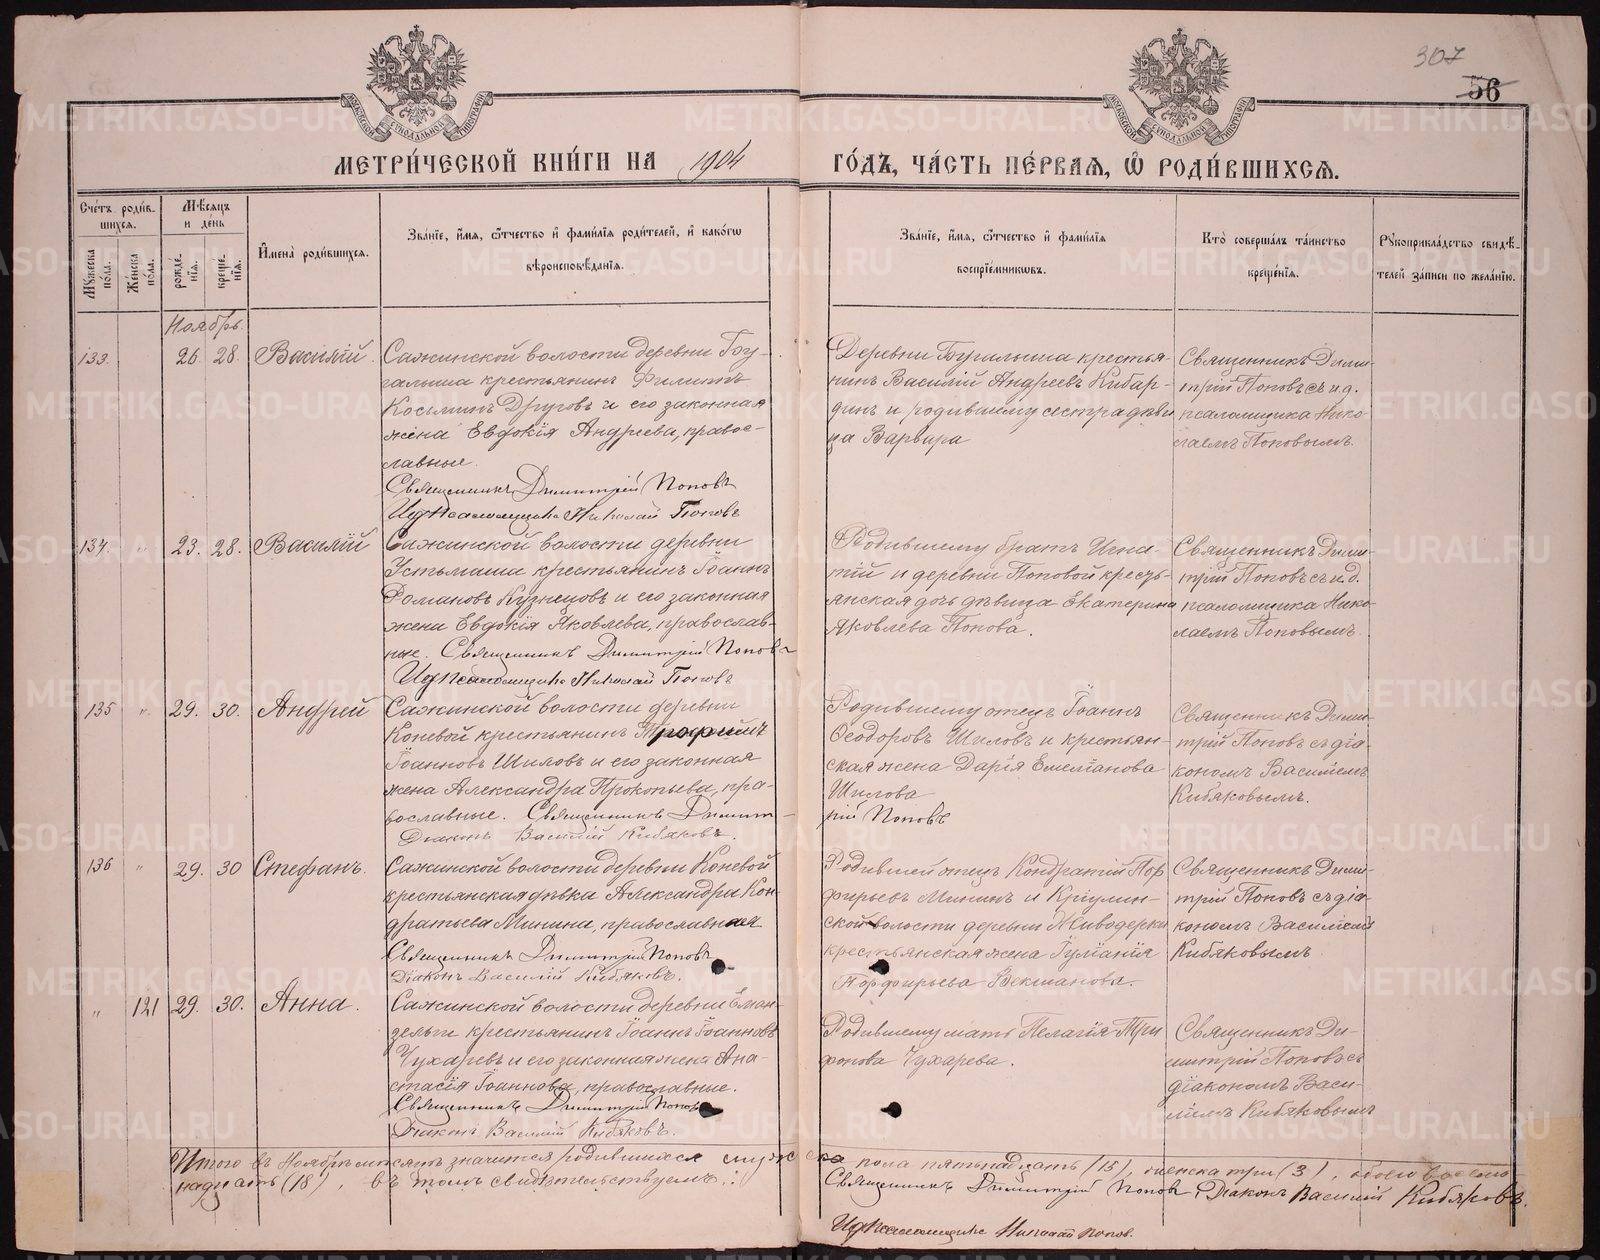 307
56
МЕТРИ́ЧЕСКОЙ КНИ́ГИ НА 1904 ГО́ДЪ, ЧА́СТЬ ПЕ́РВАЯ, Ѿ РОДИ́ВШИХСЯ.
Сче́тъ роди́в-
шихся.
Мꙋжеска по́ла.
Же́нска по́ла.
Мѣ́сяцъ
и де́нь
рожде́-нїя.
креще́-нїя.
Имена̀ роди́вшихся.
Зва́нїе, и́мя, ѻ́тчество и фами́лїя роди́телей, и како́гѡ
вѣроисповѣ́данїя.
Зва́нїе, и́мя, ѻ́тчество и фами́лїя
воспрїе́мниковъ.
Кто̀ соверша́лъ та́инство
креще́нїя.
Рꙋкоприкла́дство свидѣ́-
телей за́писи по жела́нїю.
Ноябрь.
133. 26. 28. Василій.
Сажинской волости деревни Гоу-
галыша крестьянинъ Филиппъ
Косьминъ Друговъ и его законная
жена Евдокія Андреева, правос-
лавные.
Священникъ Димитрій Поповъ
И д Псаломщика Николай Поповъ
Деревни Гоугилыша крестья-
нинъ Василій Андреевъ Кибар-
динъ и родившему сестра дѣви
ца Варвара
Священникъ Дими-
трій Поповъ съ и. д.
псаломщика Нико-
лаемъ Поповымъ.
134. " 23. 28. Василій
Сажинской волости деревни
Устьмаша крестьянинъ Іоаннъ
Романовъ Кузнецовъ и его законная
жена Евдокія Яковлева, православ-
ные. Священникъ Димитрій Поповъ
И д Псаломщика Николай Поповъ
Родившему братъ Игна-
тій и деревни Поповой кресть-
янская дочь дѣвица Екатерина
Яковлева Попова.
Священникъ Дими-
трій Поповъ съ и.д.
псаломщика Нико-
лаемъ Поповымъ.
135 " 29. 30. Андрей
Сажинской волости деревни
Коневой крестьянинъ
Іоанновъ Шиловъ и его законная
жена Александра Прокопьева, пра-
вославные. Священникъ Димит-
Діаконъ Василій Кибяковъ.
Родившему отецъ Іоаннъ
Ѳеодоровъ Шиловъ и крестьян-
ская жена Дарія Емеліанова
Шилова
рій Поповъ
Священникъ Дими-
трій Поповъ съ діа-
кономъ Василіемъ
Кибяковымъ.
136 " 29. 30 Стефанъ.
Сажинской волости деревни Коневой
крестьянская дѣвка Александра Кон-
дратьева Минина, православная
Священникъ Димитрій Поповъ
Діаконъ Василій Кибяковъ.
Родившей отецъ Кондратій Пор
фирьевъ Мининъ и Кріулин-
ской волости деревни Живодерки
крестьянская жена Іуліанія
Порфирьева Векшанова.
Священникъ Дими-
трій Поповъ съ діа-
кономъ Василіемъ
Кибяковымъ.
" 121 29. 30. Анна.
Сажинской волости деревни Еман-
зельги крестьянинъ Іоаннъ Іоанновъ
Чухаревъ и его законная жена Ана-
стасія Іоаннова, православные.
Священникъ Димитрій Поповъ
Діаконъ Василій Кибяковъ.
Родившему мать Пелагія Три
фонова Чухарева.
Священникъ Ди-
митрій Поповъ съ
діакономъ Васи-
ліемъ Кибяковымъ
Итого въ Ноябрѣ мѣсяцѣ значится родившихся мужска пола пятьнадцать (15), женска три (3), обоего восемь-
надцать (18), въ томъ свидѣтельствуемъ: Священникъ Димитрій Поповъ, Діаконъ Василій Кибяковъ.
И д Псаломщика Николай Попов.